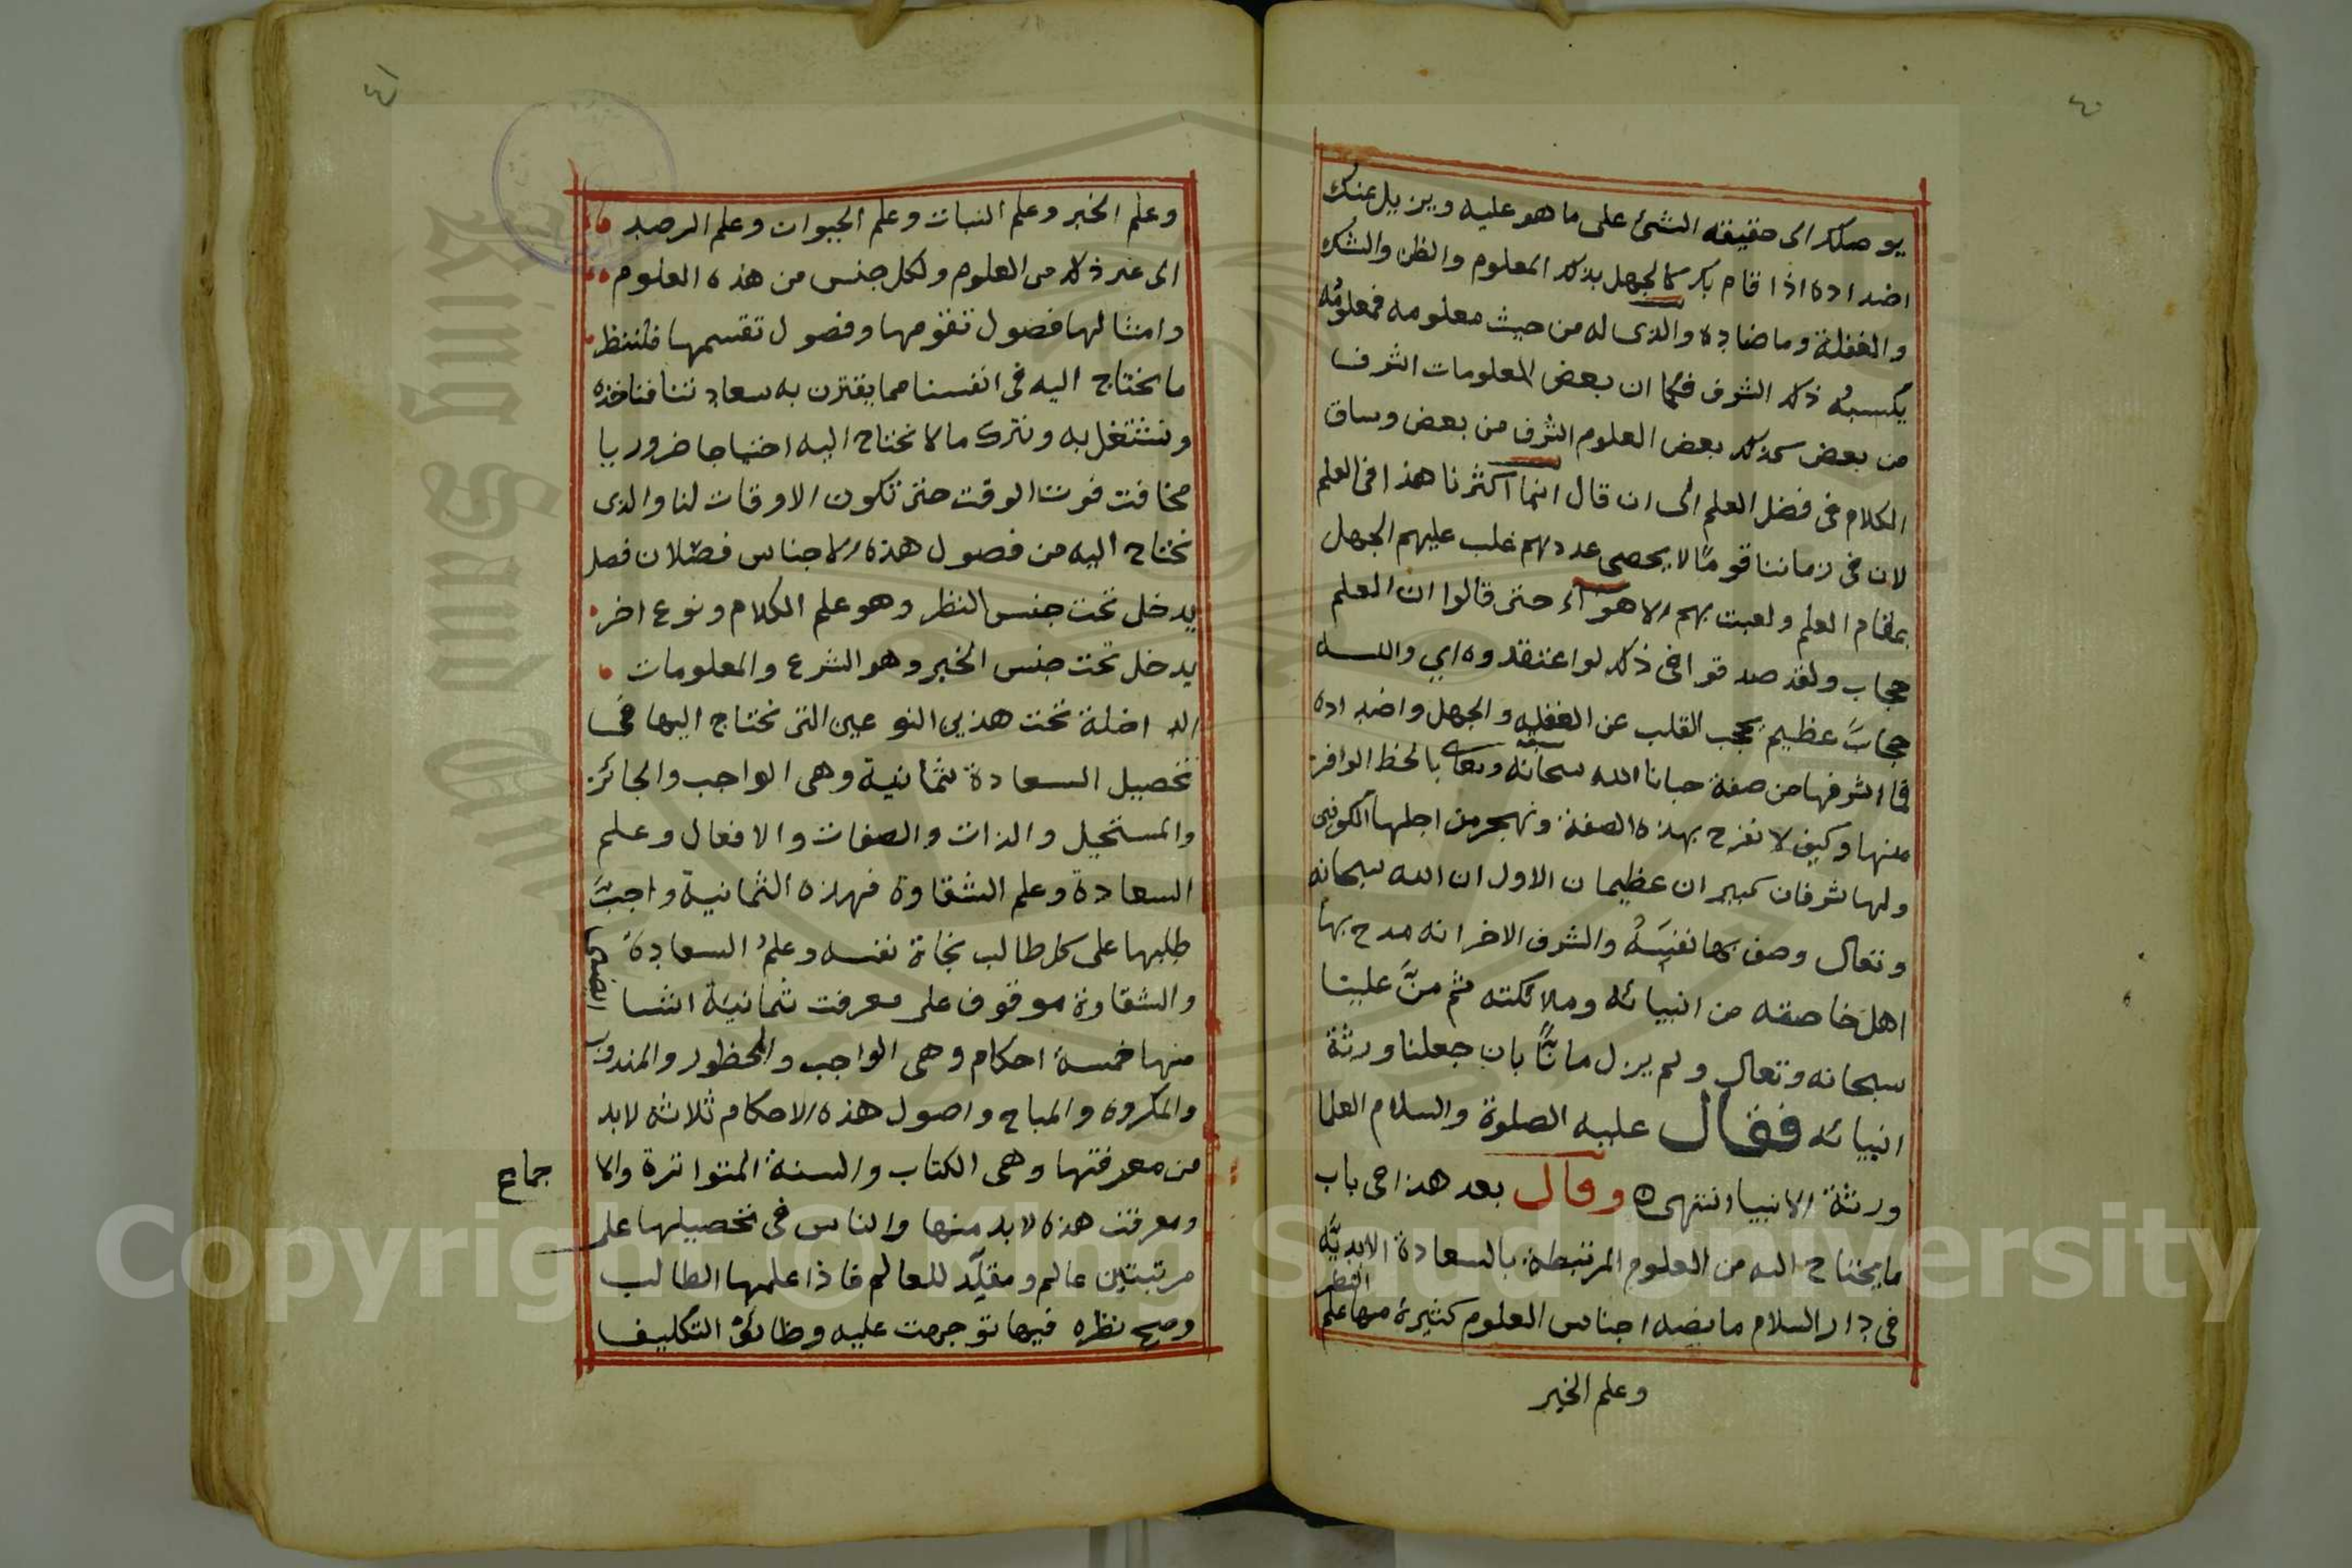 ٤٠
يوصلك الى حقيقة الشئ على ما هو عليه ويزيل عنك
اضداده اذا قام بك كالجهل بذلك المعلوم والظن والشك
والغفلة وما ضاده والذى له من حيث معلومه فمعلومه
يكسبه ذلك الشرف فكما ان بعض المعلومات اشرف
من بعض كذلك بعض العلوم اشرف من بعض وساق
الكلام فى فضل العلم الى ان قال انما اكثرنا هذا فى العلم
لان فى زماننا قومًا لا يحصى عددهم غلب عليهم الجهل
بمقام العلم ولعبت بهم الاهواء حتى قالوا ان العلم
حجاب ولقد صدقوا فى ذلك لو اعتقدوه اي والله
حجابٌ عظيم يحجب القلب عن الغفلة والجهل واضداده
فما اشرفها من صفة حبانا الله سبحانه وتعالى بالحظ الوافر
منها وكيف لا نفرح بهذه الصفة ونهجر من اجلها الكونين
ولها شرفان كبيران عظيمان الاول ان الله سبحانه
وتعالى وصف بها نفسَهُ والشرف الاخر انه مدح بها
اهل خاصته من انبيائه وملائكته ثم منَّ علينا
سبحانه وتعالى ولم يزل مانًّا بان جعلنا ورثة
انبيائه فقال عليه الصلوة والسلام العلما
ورثة الانبيا انتهى ه وقال بعد هذا فى باب
ما يحتاج اليه من العلوم المرتبطة بالسعادة الابديَّه
النظر
فى دار السلام ما نصه اجناس العلوم كثيرة منها علم
وعلم الخبر
٤١
وعلم الخبر وعلم النبات وعلم الحيوان وعلم الرصد
الى غير ذلك من العلوم ولكل جنس من هذه العلوم
وامثالها فصول تقومها وفصول تقسمها فلننظر
ما نحتاج اليه فى انفسنا مما يقترن به سعادتنا فناخذه
ونشتغل به ونترك مالا نحتاج اليه احتياجا ضروريا
مخافت فوت الوقت حتى تكون الاوقات لنا والذى
نحتاج اليه من فصول هذه الاجناس فصلان فصل
يدخل تحت جنس النظر وهو علم الكلام ونوع اخر
يدخل تحت جنس الخبر وهو الشرع والمعلومات
الداخلة تحت هذين النوعين التى نحتاج اليها فى
تحصيل السعادة ثمانية وهى الواجب والجائز
والمستحيل والذات والصفات والافعال وعلم
السعادة وعلم الشقاوة فهذه الثمانية واجبٌ
طلبها على كل طالب نجاة نفسه وعلمُ السعادة
والشقاوة موقوف على معرفت ثمانية اشيا ايضا
منها خمسة احكام وهى الواجب والمحظور والمندوب
والمكروه والمباح واصول هذه الاحكام ثلاثه لابد
من معرفتها وهى الكتاب والسنة المتواترة والا
جماع
ومعرفت هذه لابد منها والناس فى تحصيلها على
مرتبتين عالم ومقلّد للعالم فاذا علمها الطالب
وصح نظره فيها توجهت عليه وظائف التكليف
Copyright © King Saud University